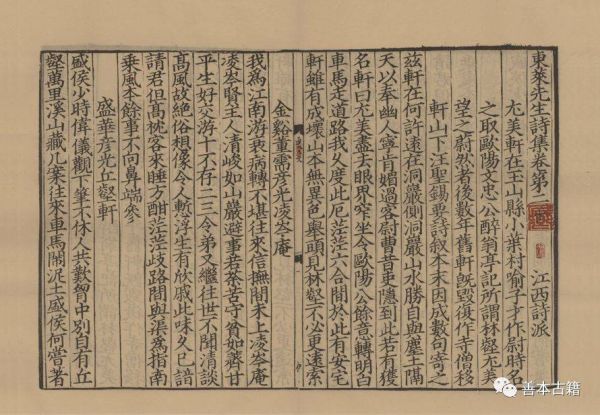 東萊先生詩集卷第　江西詩派
尤美軒在玉山縣小葉村喻子才作尉時名
之取歐陽文忠公醉翁亭記所謂林壑尤美
望之蔚然者後數年舊軒旣毀復作寺僧移
軒山下汪聖錫要詩叙本末因成數句寄之
茲軒在何許遠在洞巖側洞巖山水勝自與塵土隔
天以奉幽人寧肯媚過客尉曹昔吏隱到此若有獲
名軒曰尤美盡去眼界窄坐令歐陽公餘意轉明白
車馬走道路我久度此厄茫茫六合間於此有安宅
軒雖有成壞山本無異色舉頭見林壑不必更遠索
金谿董需彦光凌岑庵
我為江南游衰病轉不堪往來信撫間未上凌岑庵
凌岑賢主人清峻如山巖避事吾茶苦守貧如薺甘
平生好交游十不存二三令弟又繼往世不聞清談
高風故絕俗想像令人慙浮生有欣戚此味久已諳
請君但高枕客來睡方酣茫茫歧路間與渠為指南
乗風本餘事不向鼻端參
盛華彦光丘壑軒
盛侯少時偉儀觀一筆不休人共歎胷中別自有丘
壑萬里溪山藏几案往來車馬閙泥土盛侯何嘗著
善本古籍